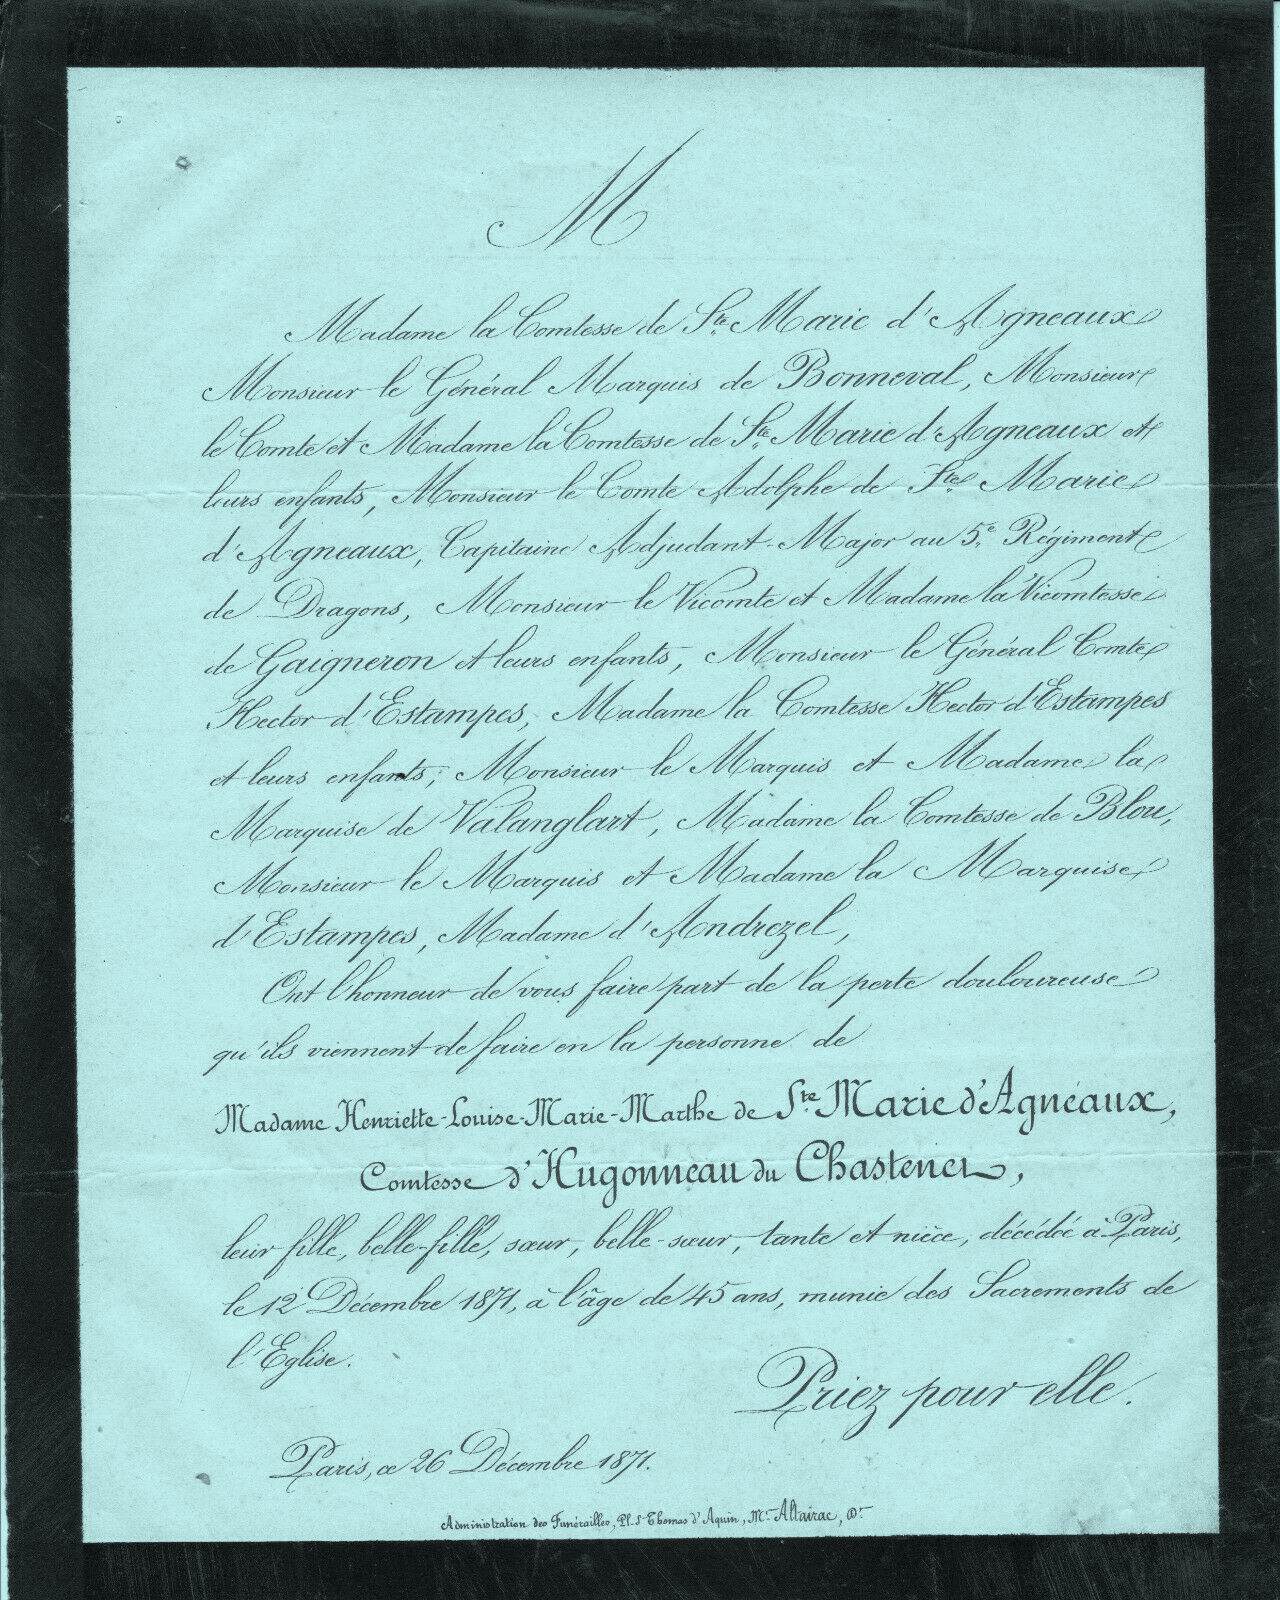 M
Madame la Comtesse de Ste Marie d'Agneaux
Monsieur le Général Marquis de Bonneval, Monsieur
le Comte et Madame la Comtesse de Ste Marie d'Agneaux et
leurs enfants, Monsieur le Comte Adolphe de Ste Marie
d'Agneaux, Capitaine Adjudant-Major au 5e Régiment
de Dragons, Monsieur le Vicomte et Madame la Vicomtesse
de Gaigneron et leurs enfants, Monsieur le Général Comte
Hector d'Estampes, Madame la Comtesse Hector d'Estampes
et leurs enfants; Monsieur le Marquis et Madame la
Marquise de Valanglart, Madame la Comtesse de Blou,
Monsieur le Marquis et Madame la Marquise
d'Estampes, Madame d'Andrezel,
Ont l'honneur de vous faire part de la perte douloureuse
qu'ils viennent de faire en la personne de
Madame Henriette-Louise-Marie-Marthe de Ste Marie d'Agneaux,
Comtesse d'Hugonneau du Chastenet,
leur fille, belle-fille, sœur, belle-sœur, tante et nièce, décédée à Paris,
le 12 Décembre 1871, à l'âge de 45 ans, munie des Sacrements de
l'Eglise.
Priez pour elle.
Paris, ce 26 Décembre 1871.
Administration des Funérailles, Pl. St Thomas d'Aquin, Mr Altairac, Dr